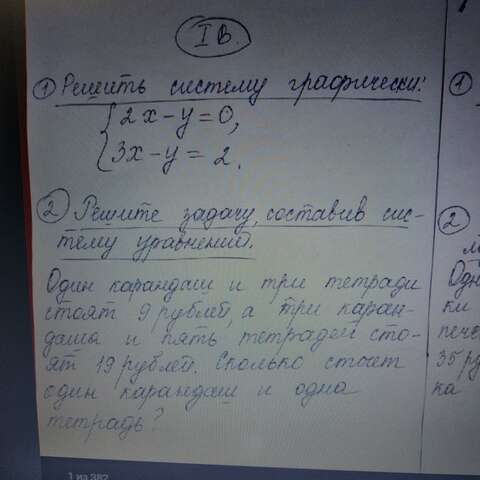 I В.
1 Решить систему графически:
2x-y=0,
3x-y=2.
2 Решите задачу, составив сис-
тему уравнений.
Один карандаш и три тетради
стоят 9 рублей, а три каран-
даша и пять тетрадей сто-
ят 19 рублей. Сколько стоит
один карандаш и одна
тетрадь?
1 из 382
1
2
Одн
ки
пече
35 ру
ка